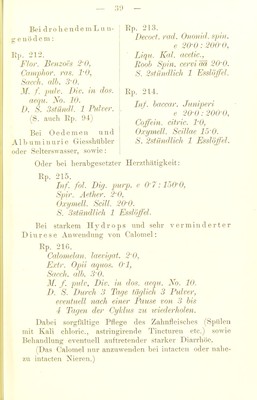 — 39 —
Bei drohendem Lun-
genödem:
Rp. 212.
Flor. Benzoës 2·0,
Camphor. ras. 1·0,
Sacch. alb. 3·0.
M. f. pulv. Div. in dos.
aequ. No. 10.
D. S. 2stündl. 1 Pulver.
(S. auch Rp. 94)
Bei Oedemen und
Albuminurie Giesshübler
oder Selterswasser, sowie:
Rp. 213.
Decoct. rad. Ononid. spin.
e 20·0 : 200·0,
Liqu. Kal. acetic.,
Roob Spin. cervi āā 20·0.
S. 2stündlich 1 Esslöffel.
Rp. 214.
Inf. baccar. Juniperi
e 20·0 : 200·0,
Coffein. citric. 1·0,
Oxymell. Scillae 15·0.
S. 2stündlich 1 Esslöffel.
Oder bei herabgesetzter Herzthätigkeit:
Rp. 215.
Inf. fol. Dig. purp. e 0·7 : 150·0,
Spir. Aether. 2·0,
Oxymell. Scill. 20·0.
S. 3stündlich 1 Esslöffel.
Bei starkem Hydrops und sehr verminderter
Diurese Anwendung von Calomel:
Rp. 216.
Calomelan. laevigat. 2·0,
Extr. Opii aquos. 0·1,
Sacch. alb. 3·0.
M. f. pulv. Div. in dos. aequ. No. 10.
D. S. Durch 3 Tage täglich 3 Pulver,
eventuell nach einer Pause von 3 bis
4 Tagen der Cyklus zu wiederholen.
Dabei sorgfältige Pflege des Zahnfleisches (Spülen
mit Kali chloric., astringirende Tincturen etc.) sowie
Behandlung eventuell auftretender starker Diarrhöe.
(Das Calomel nur anzuwenden bei intacten oder nahe-
zu intacten Nieren.)